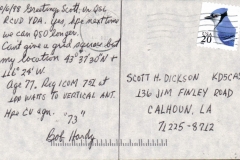 10/6/98 Greetings Scott. Ur QSL
RCVD YDA. Yes, hpe next time
we can QSO longer.
Cant give a grid square but
my location 43° 37' 30" N +
116° 24' W.
Age 77. Rig ICOM 751 at
100 WATTS TO VERTICAL ANT.
Hpe CU agn.
"73"
Bob Hardy
USA
20
SCOTT H. DICKSON KD5CAS
136 JIM FINLEY ROAD
CALHOUN, LA
71225-8712